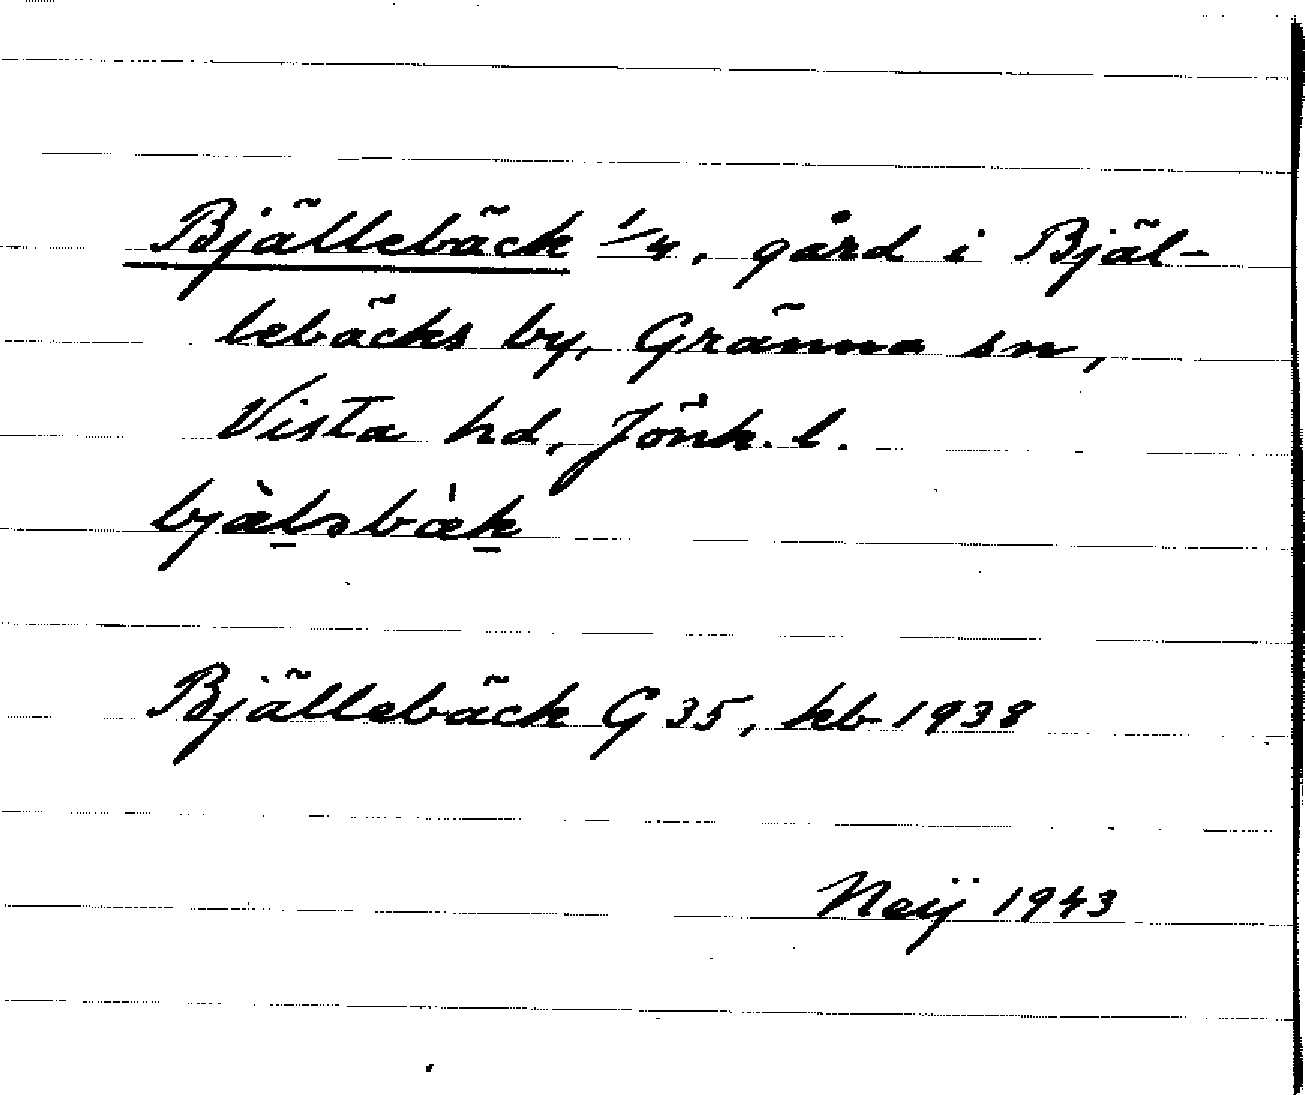 Bjällebäck 1/4, gård i Bjäl-
lebäcks by, Gränna sn,
Vista hd, Jönk. l.
Bjällebäck G 35, kb 1938
Neij 1943